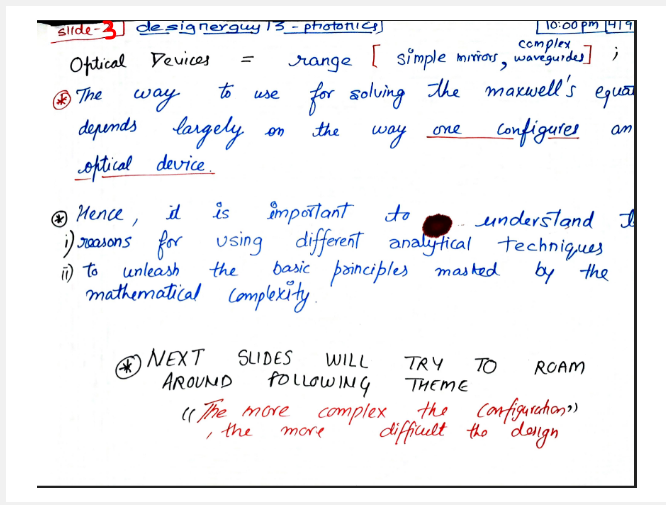 slide-3 designerguy13-photonics 10:00pm 4/9
Optical Devices = range [ simple mirrors, complex waveguides] ;
* The way to use for solving the maxwell's
depends largely on the way one configures an
optical device.
* Hence, it is important to .. understand
i) reasons for using different analytical techniques
ii) to unleash the basic principles masked by the
mathematical complexity.
* NEXT SLIDES WILL TRY TO ROAM
AROUND FOLLOWING THEME
"The more complex the configuration"
, the more difficult the design